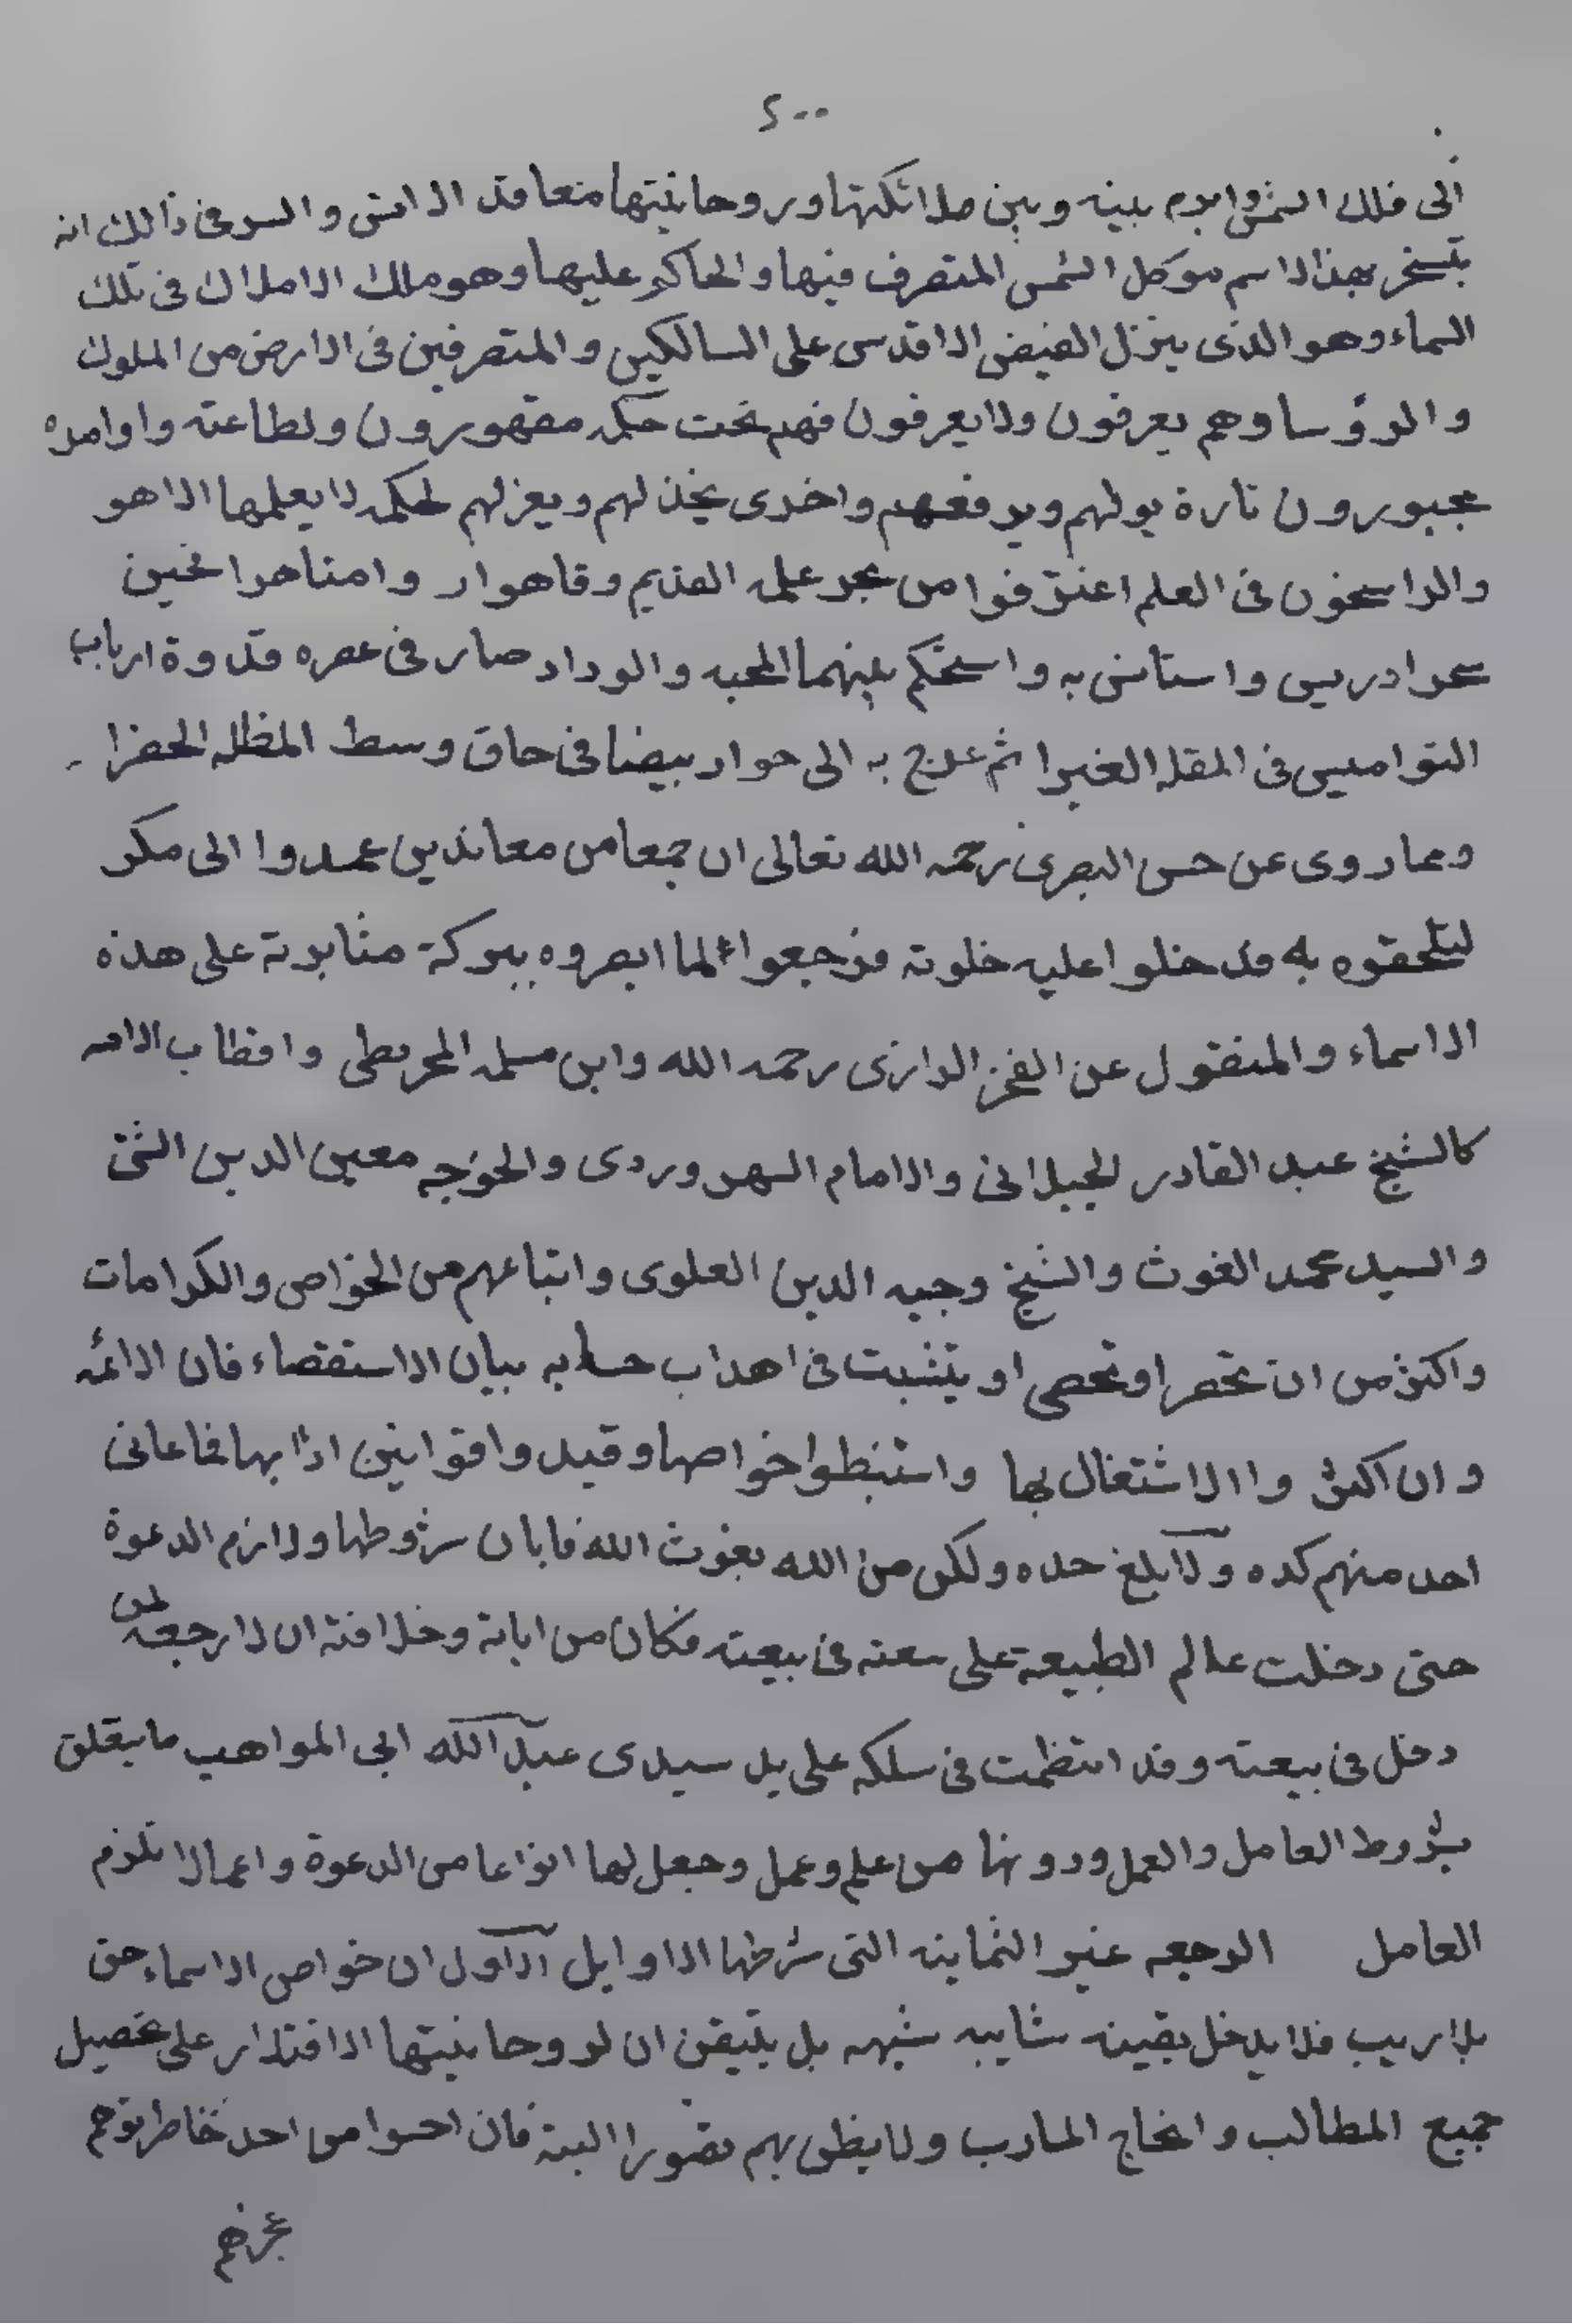 ٤٠٠
الى فلك الشمس وابرم بينه وبين ملائكتها وروحانيتها معاقد الانس والسر فى ذالك انه
يتسخر بهذا الاسم موكل الشمس المتصرف فيها والحاكم عليها وهو مالك الاملاك فى تلك
السماء وهو الذى ينزل الفيض الاقدس على السالكين والمتصرفين فى الارض من الملوك
والرؤسا وهم يعرفون ولا يعرفون فهم تحت حكمه مقهورون ولطاعته واوامره
مجبورون تارة يولهم ويرفعهم واخرى يخذلهم ويعزلهم لحكمه لا يعلمها الا هو
والراسخون فى العلم اغترفوا من بحر علمه القديم وقاهوار وامناهوا نحين
سحوا دريس واستانس به واستحكم بينهما المحبه والوداد صار فى عصره قدوة ارباب
النواميس فى المقله الغبرا ثم عرج به الى حوار بيضا فى حاق وسط المظله الخضرا
ومما روى عن حسن البصرى رحمه الله تعالى ان جمعا من معاندين عمدوا الى مكر
ليلحقوه به فدخلوا عليه خلوته فرجعوا لما ابصروه ببركة مثابرته على هذه
الاسماء والمنقول عن الفخر الرازى رحمه الله وابن مسلمه المجريطى واقطاب الامه
كالشيخ عبد القادر الجيلانى والامام السهروردى والخوجه معين الدين الشتى
والسيد محمد الغوث والشيخ وجيه الدين العلوى واتباعهم من الخواص والكرامات
واكثر من ان تحصر او تحصى او يتشبت فى اهداب حسابه بيان الاستقصاء فان الائمه
وان اكثروا الاشتغال بها واستنبطوا خواصها وقيدوا قوانين ادابها فما عانى
احد منهم كده ولا بلغ حده ولكن من الله بغوث الله فابان شروطها ولازم الدعوة
حتى دخلت عالم الطبيعة على سعته فى بيعته فكان من اياته وخلافته ان لا رجعه لمن
دخل فى بيعته وقد انتظمت فى سلكه على يد سيدى عبد الله ابى المواهب ما يتعلق
بشروط العامل والعمل ودونها من علم وعمل وجعل لها انواعا من الدعوة واعمالا تلزم
العامل الرجعه غير الثمانيه التى شرطها الاوايل الاول ان خواص الاسماء حق
بلا ريب فلا يدخل يقينه شايبه شبهه بل يتيقن ان لروحانيتها الاقتدار على تحصيل
جميع المطالب وانجاح المارب ولا يظن بهم قصورا البتة فان احسوا من احد خاطر توهم
عجزهم